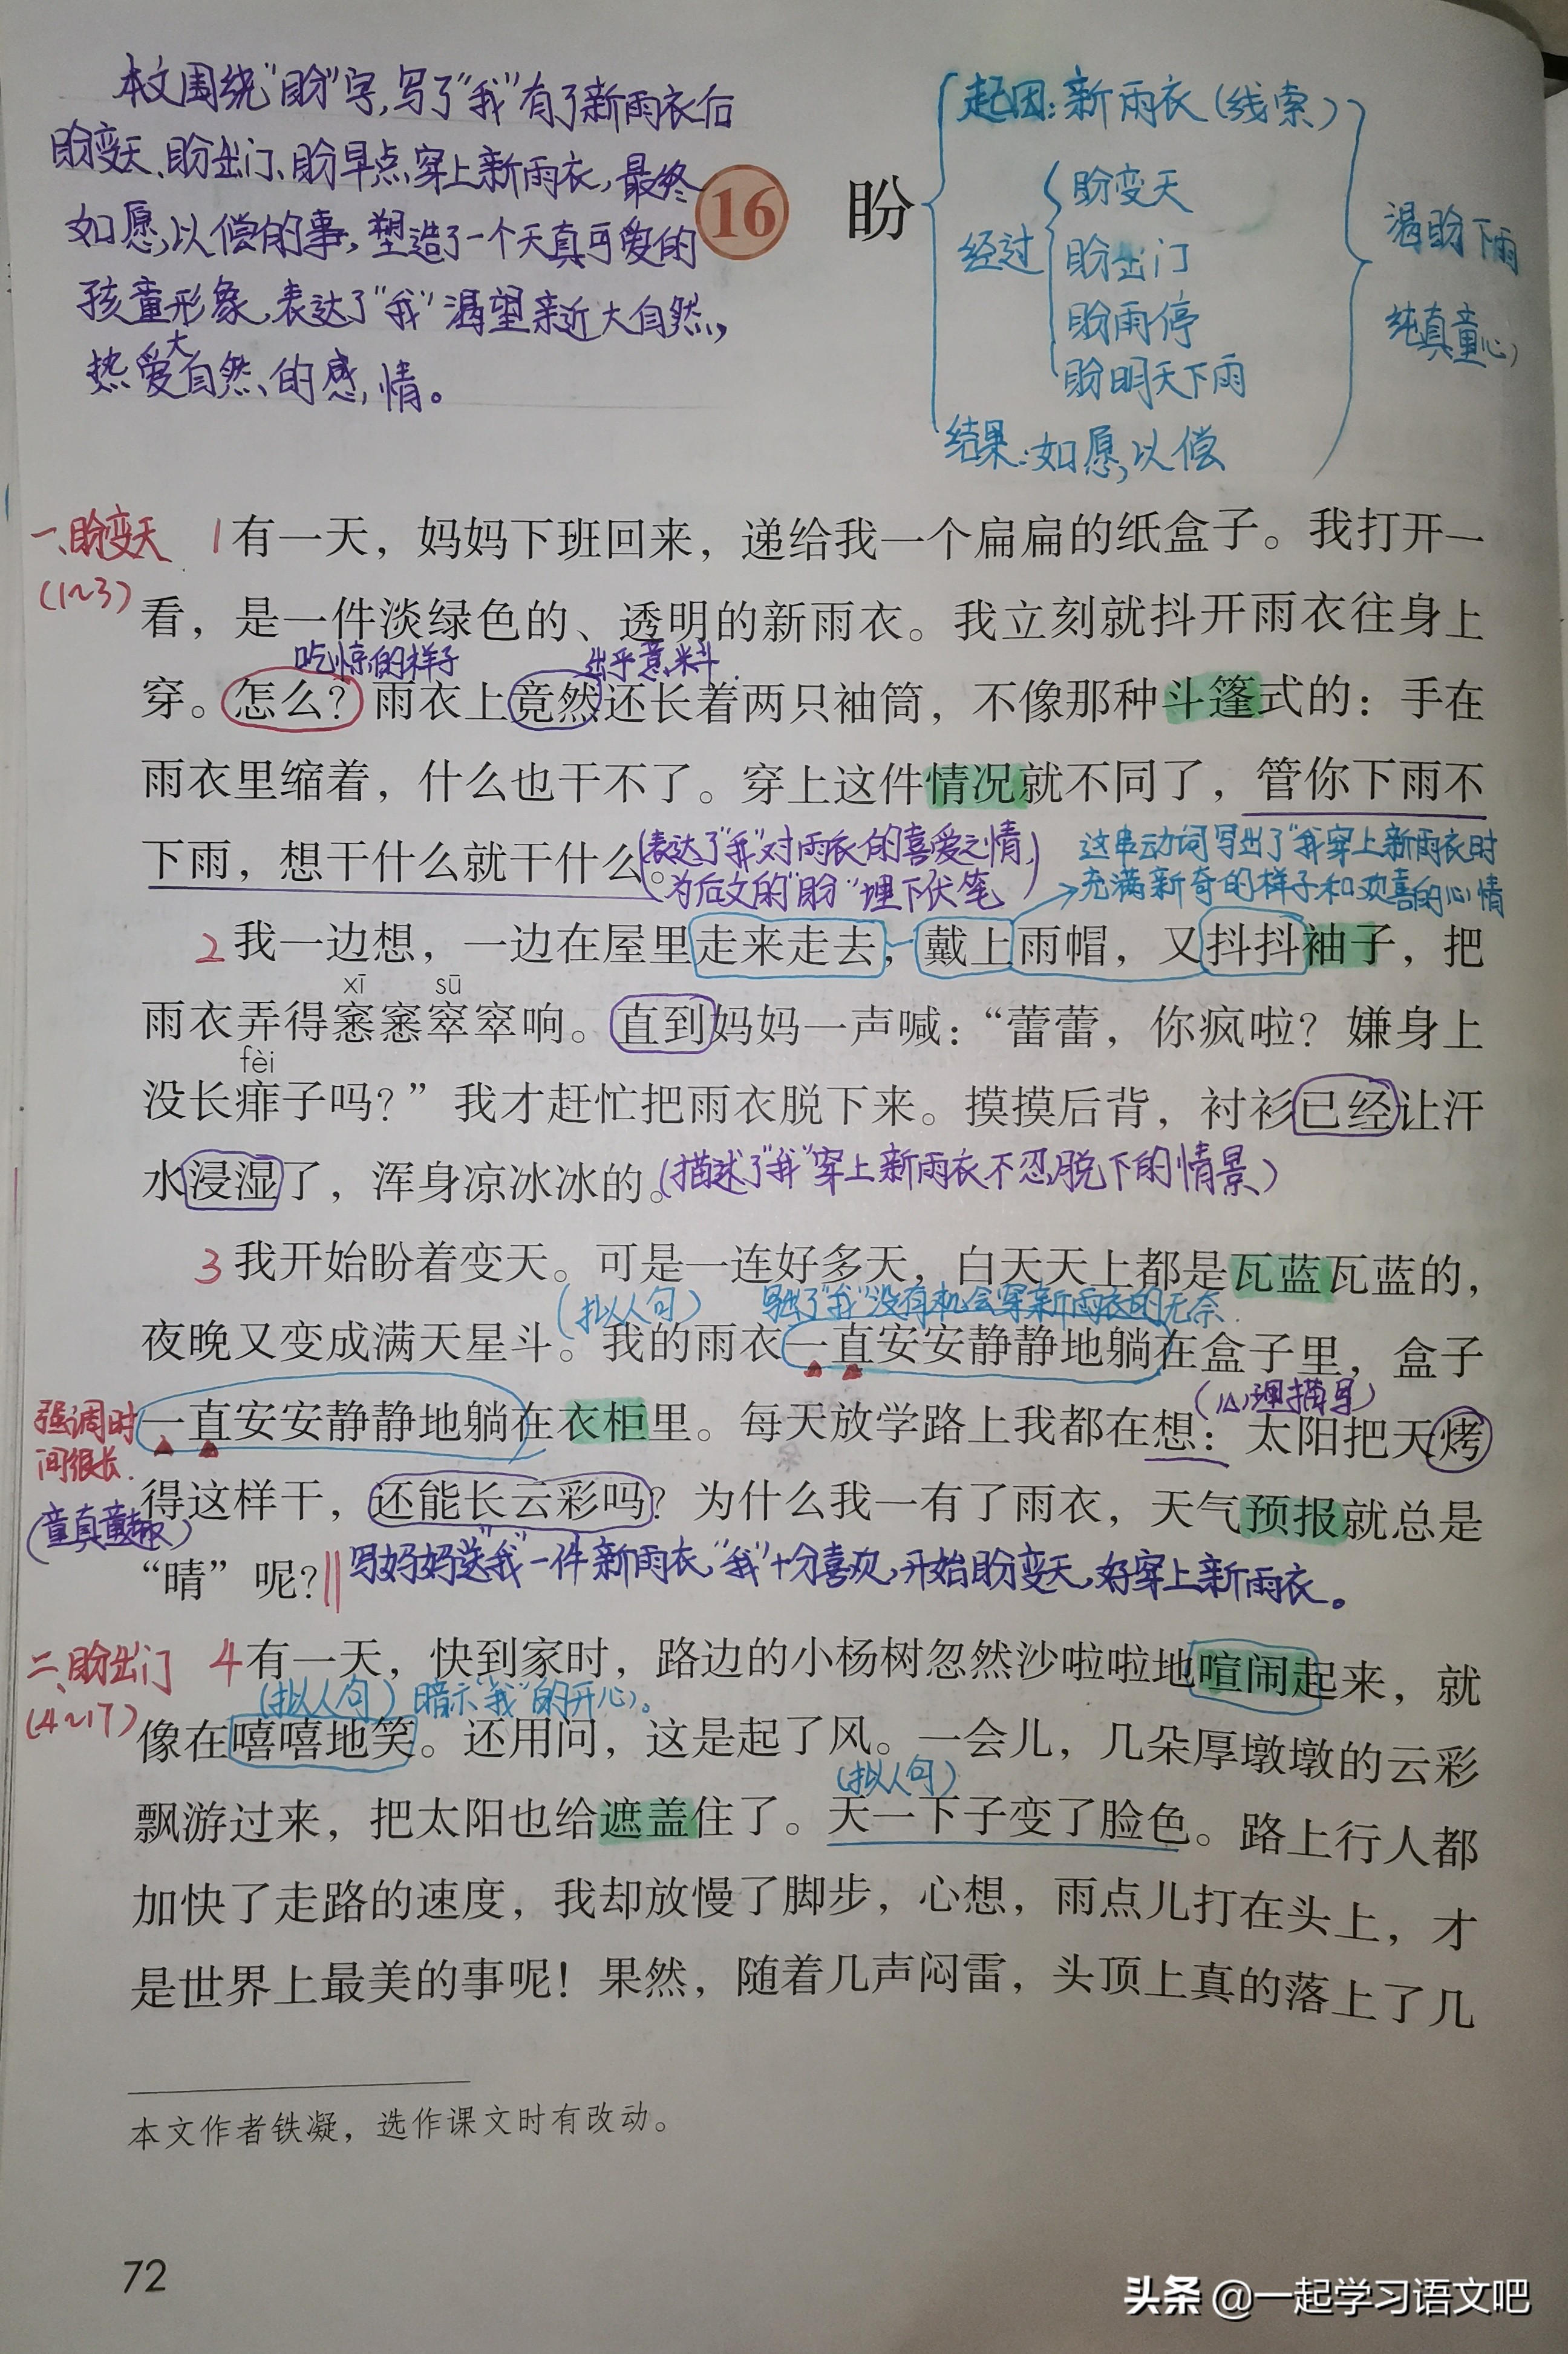 本文围绕“盼”字,写了“我”有了新雨衣后
盼变天、盼出门、盼早点穿上新雨衣,最终
如愿以偿的事,塑造了一个天真可爱的
孩童形象,表达了“我”渴望亲近大自然,
热爱大自然的感情。
16 盼
起因:新雨衣(线索)
经过
盼变天
盼出门
盼雨停
盼明天下雨
结果:如愿以偿
渴盼下雨
纯真童心
一、盼变天
(1~3)
1有一天，妈妈下班回来，递给我一个扁扁的纸盒子。我打开一
看，是一件淡绿色的、透明的新雨衣。我立刻就抖开雨衣往身上
吃惊的样子 出乎意料.
穿。怎么？雨衣上竟然还长着两只袖筒，不像那种斗篷式的：手在
雨衣里缩着，什么也干不了。穿上这件情况就不同了，管你下雨不
下雨，想干什么就干什么。
(表达了“我”对雨衣的喜爱之情,
为后文的“盼”埋下伏笔)
这串动词写出了“我”穿上新雨衣时
充满新奇的样子和欢喜的心情
2我一边想，一边在屋里走来走去，戴上雨帽，又抖抖袖子，把
xī sū
雨衣弄得窸窸窣窣响。直到妈妈一声喊：“蕾蕾，你疯啦？嫌身上
fèi
没长痱子吗？”我才赶忙把雨衣脱下来。摸摸后背，衬衫已经让汗
水浸湿了，浑身凉冰冰的。(描述了“我”穿上新雨衣不忍脱下的情景)
3我开始盼着变天。可是一连好多天，白天天上都是瓦蓝瓦蓝的，
(拟人句) 写出了“我”没有机会穿新雨衣的无奈.
夜晚又变成满天星斗。我的雨衣一直安安静静地躺在盒子里，盒子
(心理描写)
强调时
间很长.
一直安安静静地躺在衣柜里。每天放学路上我都在想：太阳把天烤
得这样干，还能长云彩吗？为什么我一有了雨衣，天气预报就总是
(童真童趣)
“晴”呢？‖写妈妈送“我”一件新雨衣,“我”十分喜欢,开始盼变天,好穿上新雨衣。
二、盼出门
(4~17)
4有一天，快到家时，路边的小杨树忽然沙啦啦地喧闹起来，就
(拟人句)暗示“我”的开心。
像在嘻嘻地笑。还用问，这是起了风。一会儿，几朵厚墩墩的云彩
(拟人句)
飘游过来，把太阳也给遮盖住了。天一下子变了脸色。路上行人都
加快了走路的速度，我却放慢了脚步，心想，雨点儿打在头上，才
是世界上最美的事呢！果然，随着几声闷雷，头顶上真的落上了几
本文作者铁凝，选作课文时有改动。
72
头条 @一起学习语文吧